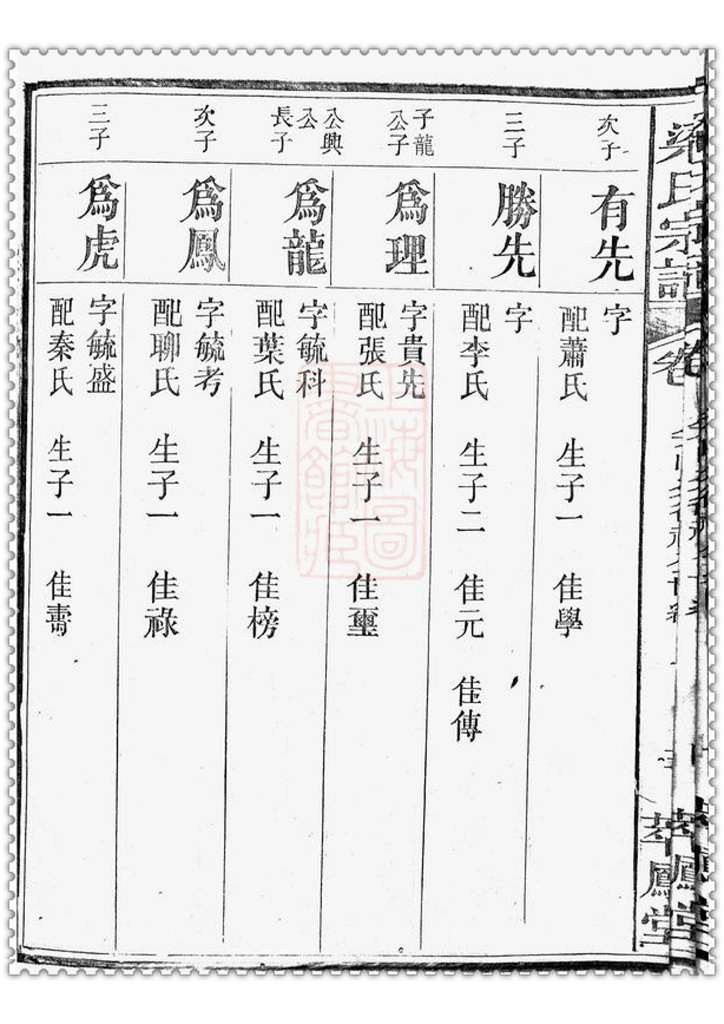 梁氏宗譜
卷
萃鳳堂
次子
有先
字
配蕭氏 生子一 佳學
三子
勝先
字
配李氏 生子二 佳元 佳傳
子龍
公子
為理
字貴先
配張氏 生子一 佳璽
公興
公
長子
為龍
字毓科
配葉氏 生子一 佳榜
次子
為鳳
字毓考
配聊氏 生子一 佳祿
三子
為虎
字毓盛
配秦氏 生子一 佳壽